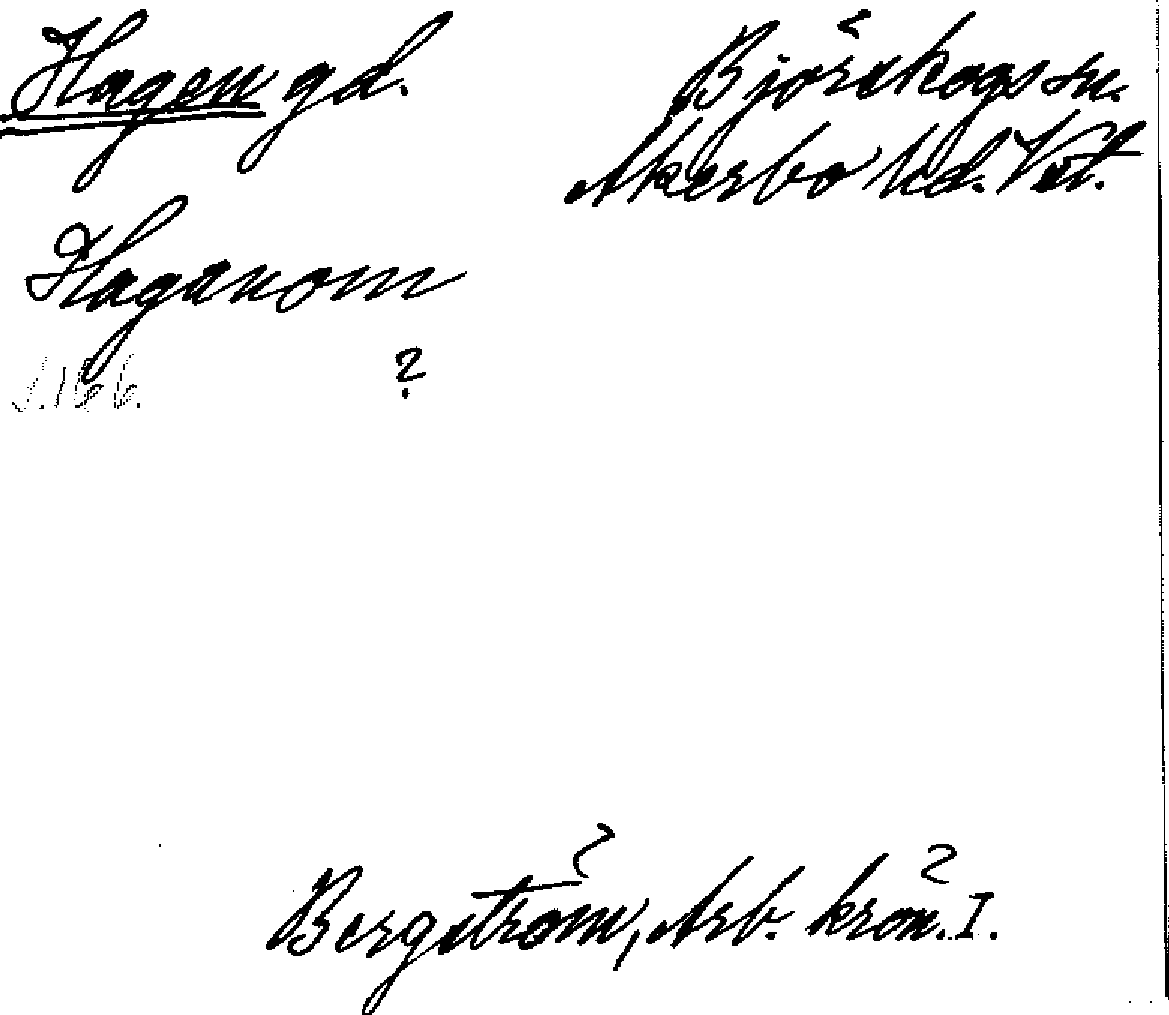 Hagen gd.
Björskogs sn.
Åkerbo hd. Vstl.
Haganom
s. 166.
?
Bergström, Arb. krön. I.